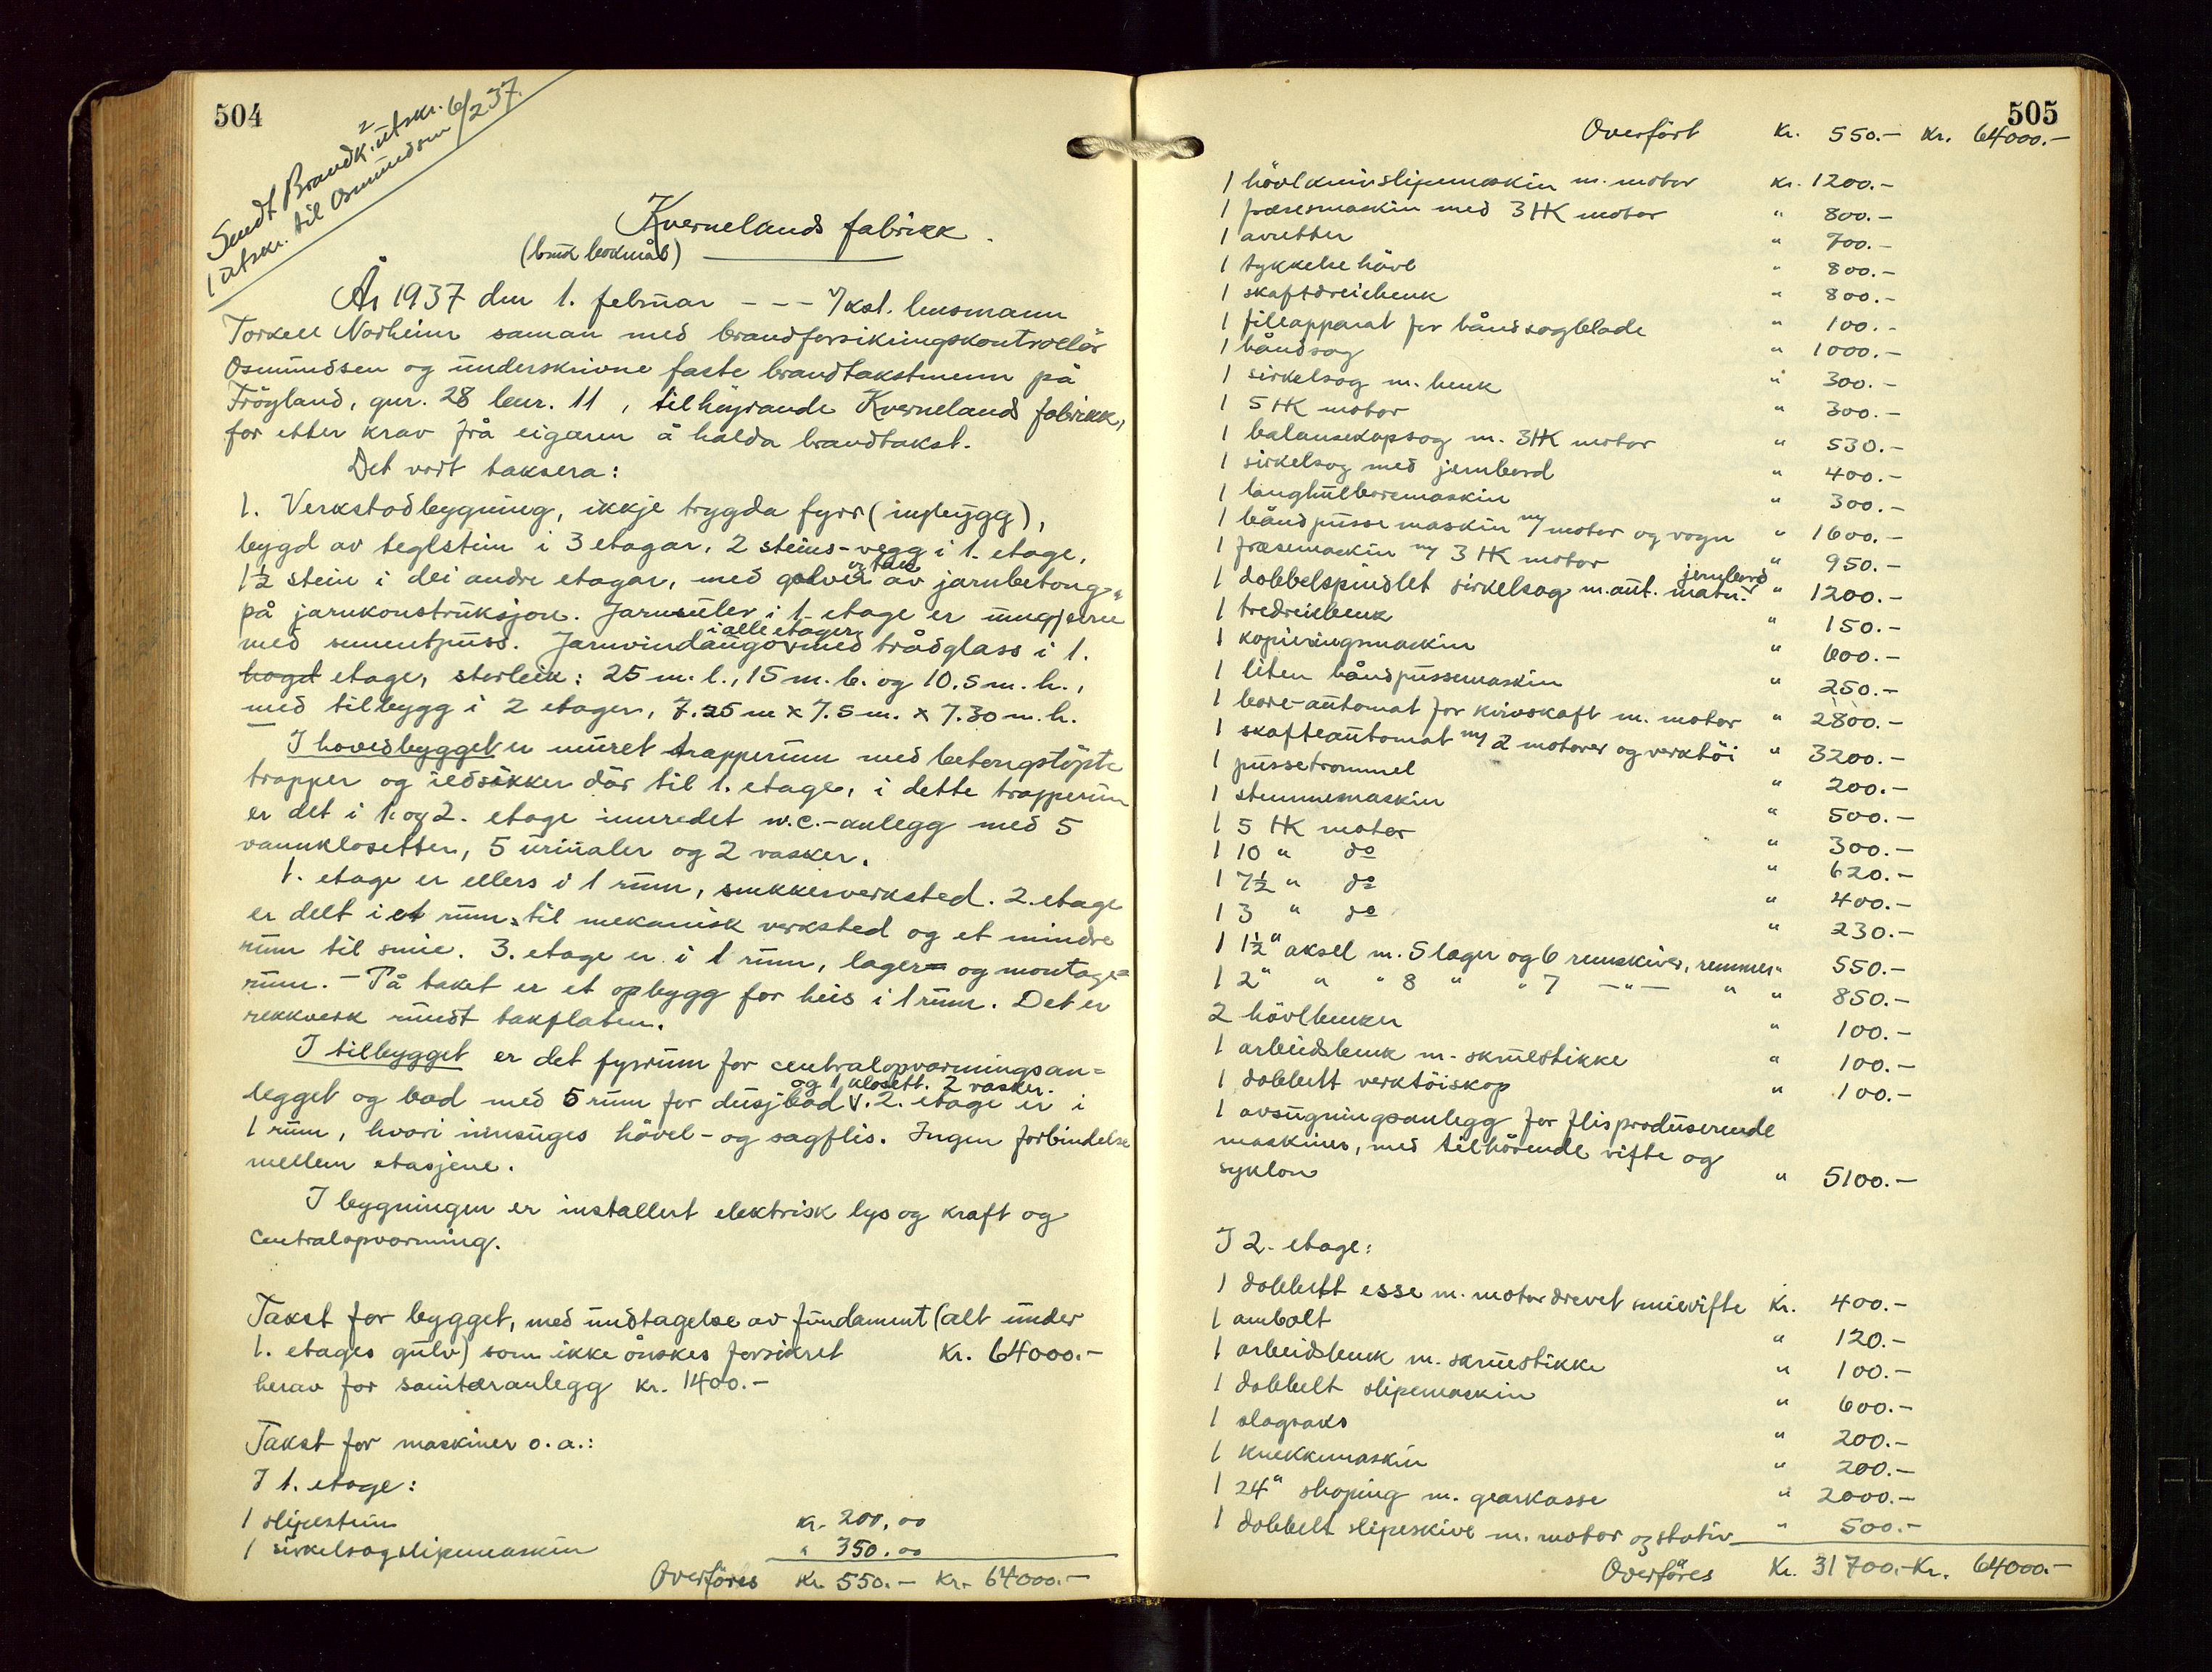 504
Sendt Brandk. 2 utskr. 6/2 37.
1 utskr. til Osmundsen
Kvernelands fabrikk.
(bruk bokmål)
År 1937 den 1. februar - - - v/kst. lensmann
Torkell Norheim saman med brandforsikringskontrollör
Osmundsen og underskrivne faste brandtakstmenn på
Frögland, gnr. 28 bnr. 11, tilhøyrande Kvernelands fabrikk,
for etter krav frå eigaren å halda brandtakst.
Det vart taksera:
1. Verkstadbygning, ikkje trygda fyrr (nybygg),
bygd av teglstein i 3 etagar, 2 steins-vegg i 1. etage,
1½ stein i dei andre etagar, med golver og tak av jarnbetong
på jarnkonstruksjon. Jarnsüler i 1. etage er
med sementpuss. Jarnvindaugor i alle etager med trådglass i 1.
hogd etage, storleik: 25 m. l., 15 m. b. og 10.5 m. h.,
med tilbygg i 2 etager, 7.25 m x 7.5 m. x 7.30 m. h.
I hovedbygget er muret trapperum med betongstöpte
trapper og ildsikker dör til 1. etage, i dette trapperum
er det i 1. og 2. etage innredet w.c.-anlegg med 5
vannklosetter, 5 urinaler og 2 vasker.
1. etage er ellers i 1 rum, snekkerverksted. 2. etage
er delt i et rum til mekanisk verksted og et mindre
rum til smie. 3. etage er i 1 rum, lager= og montage=
rum. - På taket er et opbygg for heis i 1 rum. Det er
rekkverk rundt takflaten.
I tilbygget er det fyrrum for centralopvarmingsan=
legget og bad med 5 rum for dusjbad og 1 klosett. 2 vasker. 2. etage er i
1 rum, hvori innsuges hövel- og sagflis. Ingen forbindelse
mellem etasjene.
I bygningen er installert elektrisk lys og kraft og
centralopvarming.
Takst for bygget, med undtagelse av fundament (alt under
1. etages gulv) som ikke ønskes forsikret kr. 64000.-
herav for sanitæranlegg kr. 1400.-
Takst for maskiner o. a.:
I 1. etage:
1 slipestein kr. 200,00
1 sirkelsagslipemaskin " 350.00
Overföres kr. 550.- kr. 64000.-
505
Overfört kr. 550.- kr. 64000.-
1 hövlknivslipemaskin m. motor kr. 1200.-
1 fræsemaskin med 3 HK motor " 800.-
1 avretter " 700.-
1 tykkelsehövl " 800.-
1 skaftdreiebenk " 800.-
1 fileapparat for båndsagblade " 100.-
1 båndsag " 1000.-
1 sirkelsag m. benk " 300.-
1 5 HK motor " 300.-
1 balansekapsag m. 3HK motor " 530.-
1 sirkelsag med jernbord " 400.-
1 langhullboremaskin " 300.-
1 båndpussemaskin m/ motor og vogn " 1600.-
1 fræsemaskin m/ 3 HK motor " 950.-
1 dobbelspindlet sirkelsag m. aut. matn. jernbord " 1200.-
1 tredreiebenk " 150.-
1 kopieringsmaskin " 600.-
1 liten båndpussemaskin " 250.-
1 bore-automat for knivskaft m. motor " 2800.-
1 skafteautomat m/ 2 motorer og verktöi " 3200.-
1 pussetrommel " 200.-
1 stemmemaskin " 500.-
1 5 HK motor " 300.-
1 10 " do " 620.-
1 7½ " do " 400.-
1 3 " do " 230.-
1 1½" aksel m. 5 lager og 6 remskiver, remmer " 550.-
1 2" " " 8 " " 7 -"- " " 850.-
2 hövlbenker " 100.-
1 arbeidsbenk m. skruestikke " 100.-
1 dobbelt verktöiskap " 100.-
1 avsugningsanlegg for flisproduserende
maskiner, med tilhörende vifte og
syklon " 5100.-
I 2. etage:
1 dobbelt esse m. motordrevet smievifte kr. 400.-
1 ambolt " 120.-
1 arbeidsbenk m. skruestikke " 100.-
1 dobbelt slipemaskin " 600.-
1 slagsaks " 200.-
1 knekkemaskin " 200.-
1 24" shaping m. gearkasse " 2000.-
1 dobbelt slipeskive m. motor og stativ " 500.-
Overföres kr. 31700.- kr. 64000.-